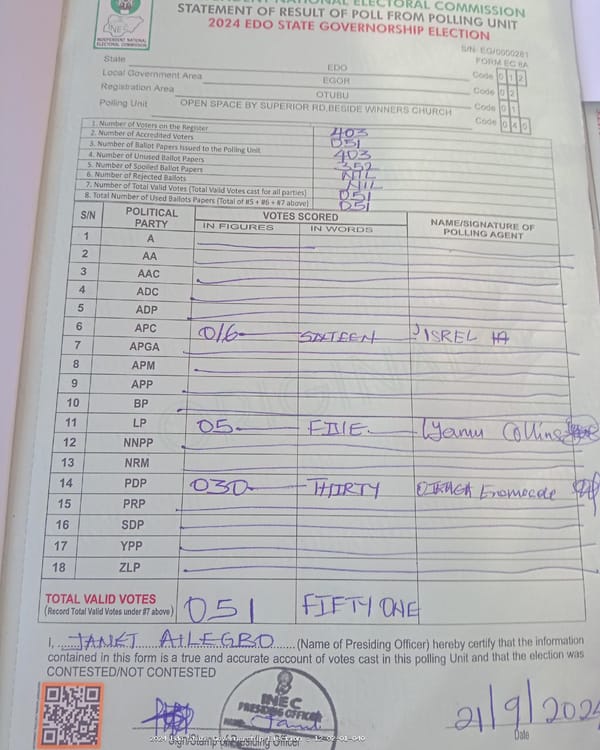 INDEPENDENT NATIONAL ELECTORAL COMMISSION
STATEMENT OF RESULT OF POLL FROM POLLING UNIT
2024 EDO STATE GOVERNORSHIP ELECTION
INEC
INDEPENDENT NATIONAL ELECTORAL COMMISSION
S/N: EG/0000281
FORM EC 8A
State EDO Code 0 1 2
Local Government Area EGOR Code 0 2
Registration Area OTUBU Code 0 1
Polling Unit OPEN SPACE BY SUPERIOR RD,BESIDE WINNERS CHURCH Code 0 4 0
1. Number of Voters on the Register 403
2. Number of Accredited Voters 051
3. Number of Ballot Papers Issued to the Polling Unit 403
4. Number of Unused Ballot Papers 352
5. Number of Spoiled Ballot Papers NIL
6. Number of Rejected Ballots NIL
7. Number of Total Valid Votes (Total Valid Votes cast for all parties) 051
8. Total Number of Used Ballots Papers (Total of #5 + #6 + #7 above) 051
S/N POLITICAL PARTY VOTES SCORED NAME/SIGNATURE OF POLLING AGENT
IN FIGURES IN WORDS
1 A
2 AA
3 AAC
4 ADC
5 ADP
6 APC 016 SIXTEEN ISREL
7 APGA
8 APM
9 APP
10 BP
11 LP 05 FIVE Collins
12 NNPP
13 NRM
14 PDP 030 THIRTY
15 PRP
16 SDP
17 YPP
18 ZLP
TOTAL VALID VOTES 051 FIFTY ONE
(Record Total Valid Votes under #7 above)
I, JANET AILEGBO (Name of Presiding Officer) hereby certify that the information
contained in this form is a true and accurate account of votes cast in this polling Unit and that the election was
CONTESTED/NOT CONTESTED
INEC
PRESIDING OFFICER
21/9/2024
Sign/Stamp of Presiding Officer
Date